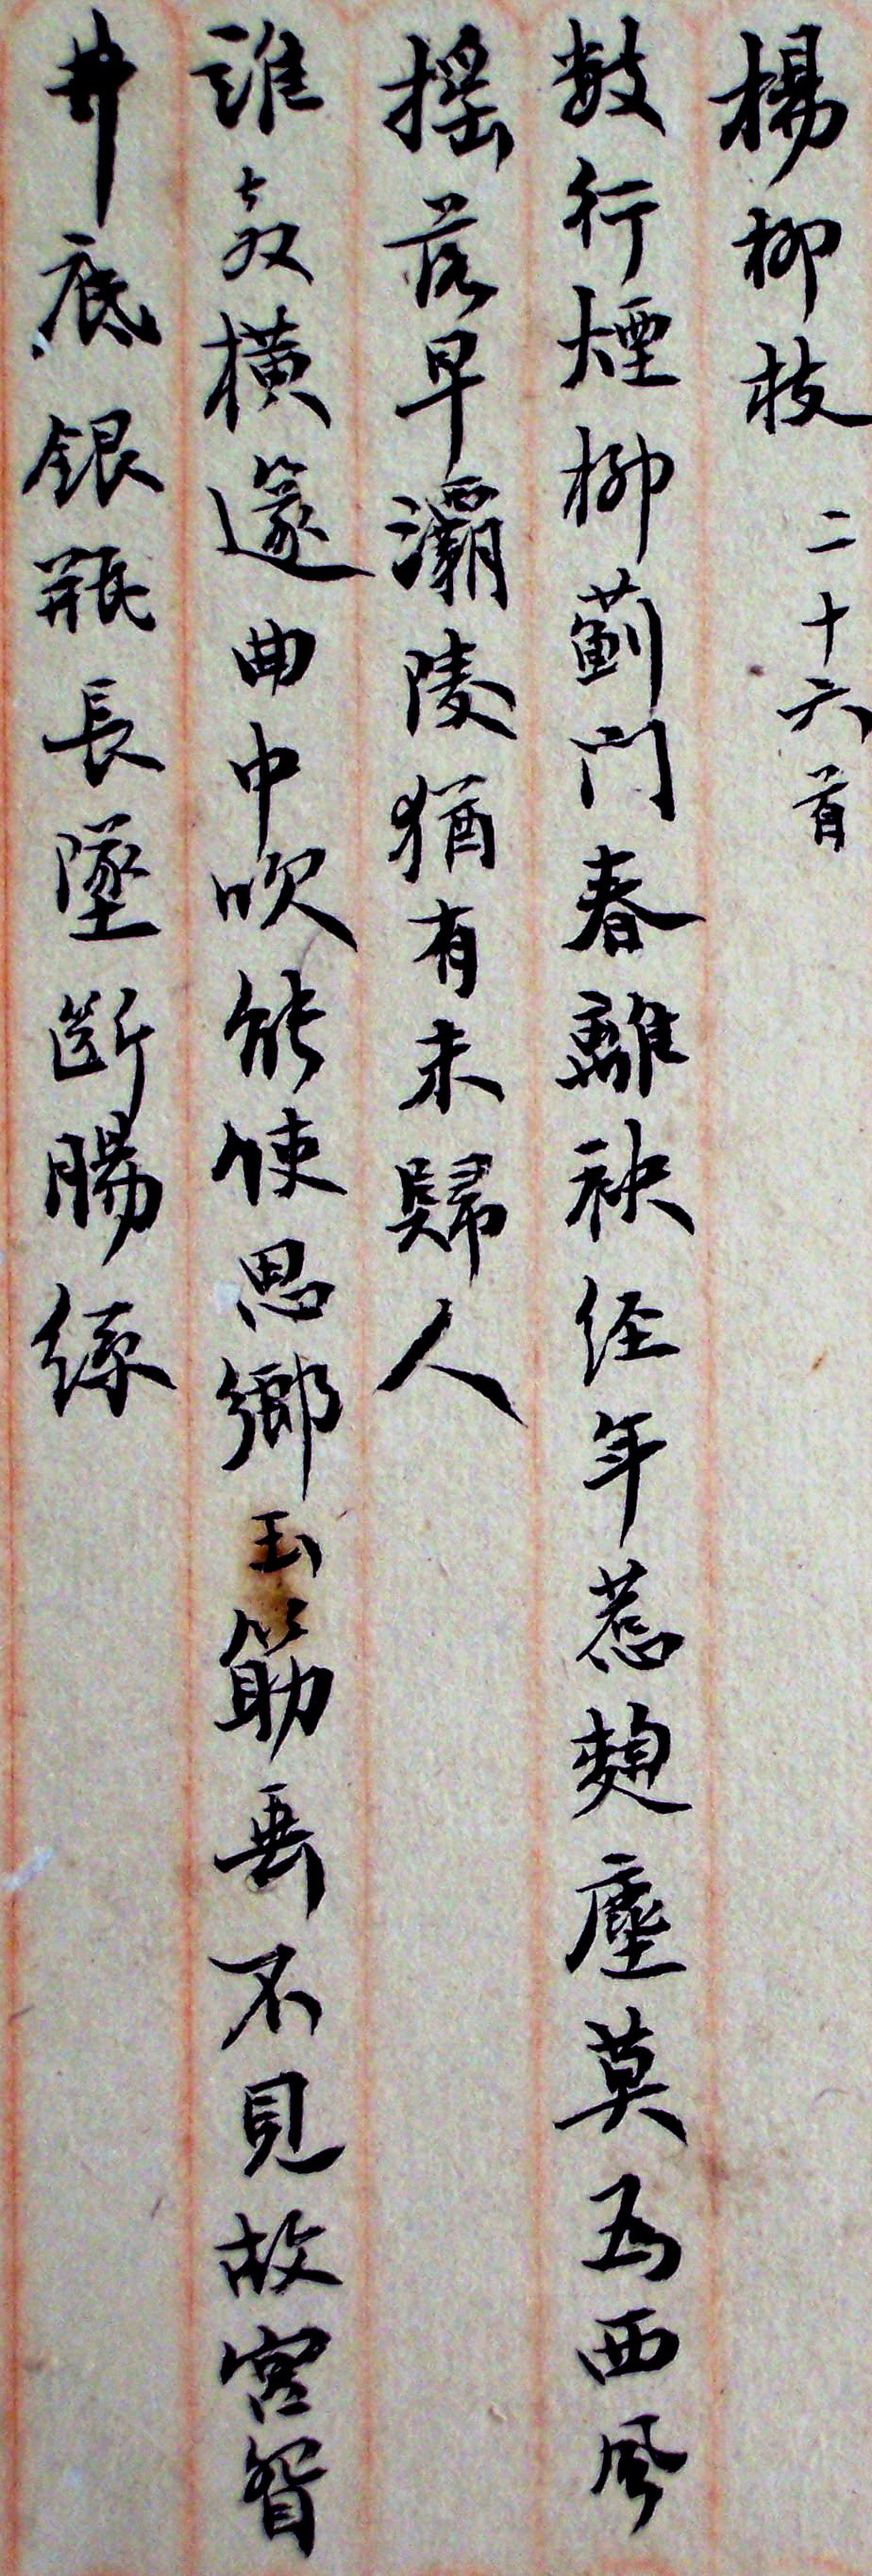 楊柳枝 二十六首
數行煙柳薊門春離袂经年惹麴塵莫為西風
搖落早灞陵猶有未歸人
誰翦橫篴曲中吹能使思鄉玉筯垂不見故宮智
井底銀瓶長墜斷腸絲